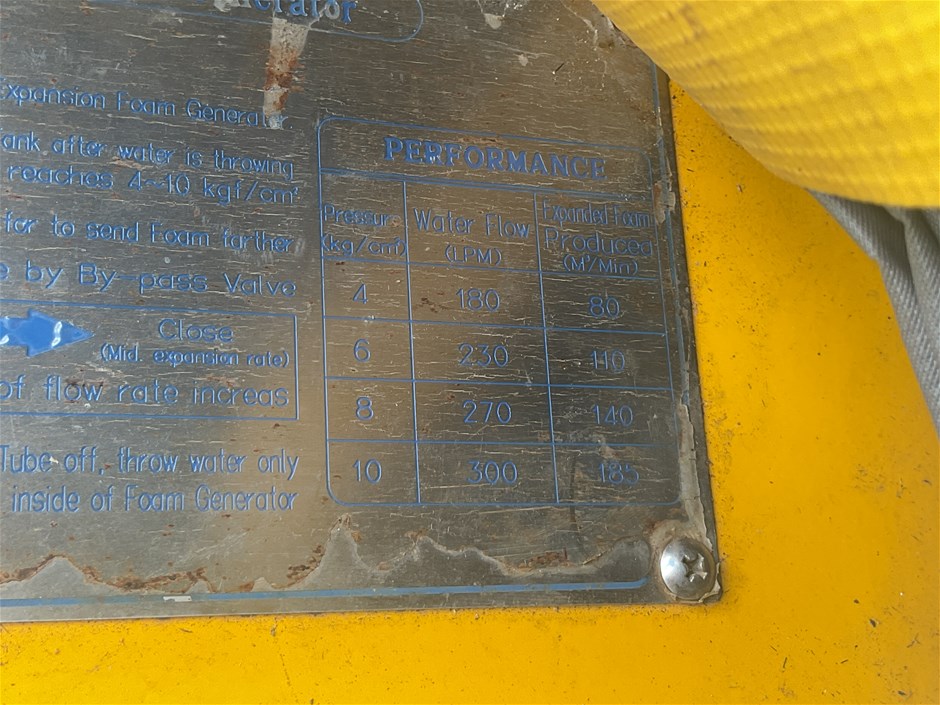 Expansion Foam Generator
ank after water is throwing
reaches 4~10 kgf/cm²
for to send Foam farther
e by By-pass Valve
Close
(Mid. expansion rate)
of flow rate increas
Tube off, throw water only
inside of Foam Generator
PERFORMANCE
Pressur Water Flow Expanded Foam Produced
(kg/cm²) (LPM) (M³/Min)
4 180 80
6 230 110
8 270 140
10 300 185